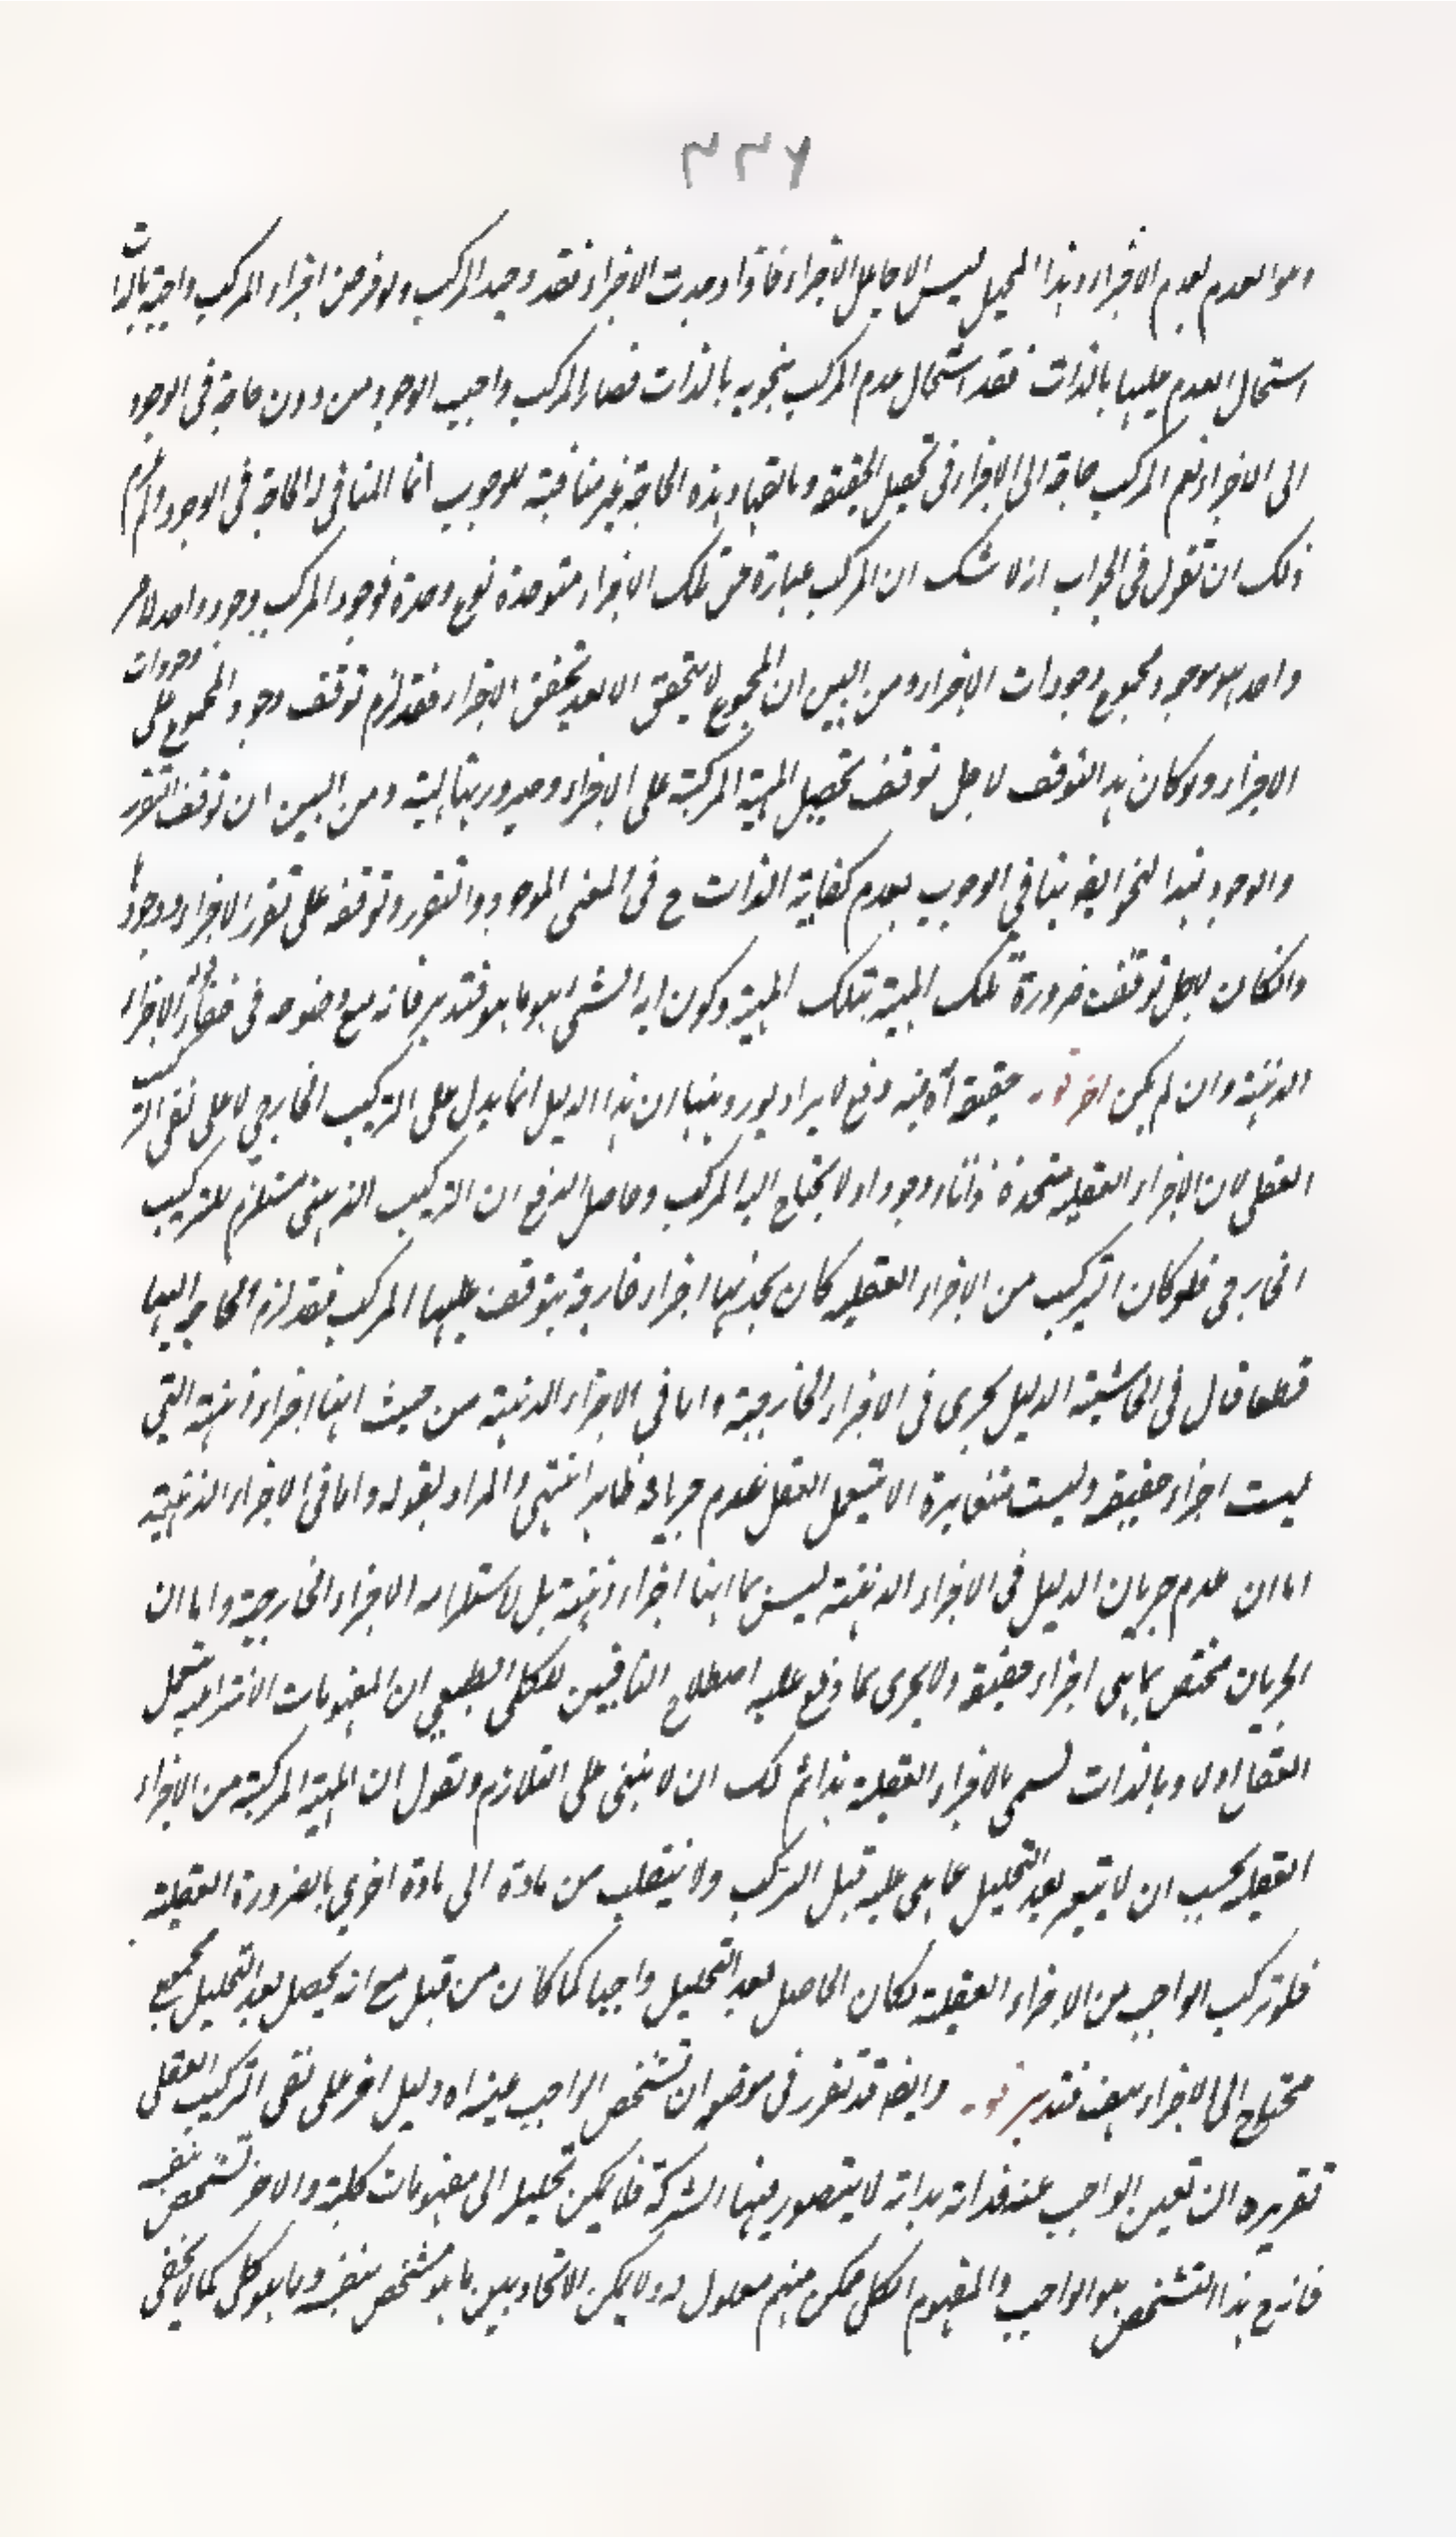 ٣٣٦
وهو العدم بعدم الاجزاء وهذا المحيل ليس الا جاعل الاجزاء فاذا وجدت الاجزاء فقد وجد المركب ولو فرض اجزاء المركب واجبة بالذات
استحال العدم عليها بالذات فقد استحال عدم المركب بالذات فصار المركب واجب الوجود من دون حاجة في الوجود
الى الاجزاء نعم المركب حاجة الى الاجزاء في تحصيل الحقيقة وهذه الحاجة غير منافية للوجوب انما المنافي له الحاجة في الوجود
ذلك ان تقول في الجواب انه لا شك ان المركب عبارة عن تلك الاجزاء متوحدة نوع وحدة فوجود المركب وجود واحد
واحد هو مجموع وجودات الاجزاء ومن البين ان المجموع لا يتحقق الا بعد تحقق الاجزاء فقد لزم توقف وجود المجموع على وجودات
الاجزاء ولو كان هذا التوقف لاجل توقف تحصيل المهية المركبة على الاجزاء وصيرورتها مهية ومن البين ان توقف التقرر
والوجود بهذا النحو ايضا ينافي الوجوب بعدم كفاية الذات ح في المعنى الموجود والتقرر وتوقفه على تقرر الاجزاء ووجودها
وانكان لاجل توقف ضرورة تلك المهية بتلك المهية وكون الشئ هو ما هو فتدبر فانه مع وضوحه في الاجزاء
الذهنية وان لم يكن اخ قوله حقيقة آه فيه دفع لايراد يورد ههنا ان هذا الدليل انما يدل على التركيب الخارجي لا على نفي التركيب
العقلي لان الاجزاء العقلية متحدة ذاتا ووجودا ولا يحتاج اليه المركب وحاصل الدفع ان التركيب الذهني مستلزم للتركيب
الخارجي فلو كان التركيب من الاجزاء العقلية كان بحذائها اجزاء خارجية يتوقف عليها المركب فقد لزم الحاجة اليها
قطعا قال في الحاشية الدليل يجرى في الاجزاء الخارجية واما في الاجزاء الذهنية من حيث انها اجزاء ذهنية التي
ليست اجزاء حقيقة وليست متغايرة الا بتعمل العقل فعدم جريانه ظاهر انتهى والمراد بقوله واما في الاجزاء الذهنية
اما ان عدم جريان الدليل في الاجزاء الذهنية ليس بما انها اجزاء ذهنية بل لاستلزامه الاجزاء الخارجية واما ان
الجريان مختص بما هي اجزاء حقيقة ولا يجرى بما وقع عليه اصطلاح النافين للكلي الطبيعي ان المفهومات الانتزاعية
العقل اولا وبالذات تسمى بالاجزاء العقلية هذا ثم لك ان لا تبني على التلازم وتقول ان المهية المركبة من الاجزاء
العقلية يجب ان لا يتغير بعد التحليل عما هي عليه قبل التركيب ولا ينقلب من مادة الى مادة اخرى بالضرورة العقلية
فلو تركب الواجب من الاجزاء العقلية لكان الحاصل بعد التحليل واجبا كما كان من قبل مع انه يحصل بعد التحليل مجموع
محتاج الى الاجزاء هف فتدبر قوله وايضا قد تقرر في موضعه ان تشخص الواجب عينه اه دليل اخر على نفي التركيب العقلي
تقريره ان تعين الواجب عينه فذاته بذاته لا يتصور فيها الشركة فلا يمكن تحليله الى مفهومات كلية والا متشخص بنفسه
فان هذا التشخص هو الواجب والمفهوم الكلي ممكن معلول له ولا يمكن الاتحاد بين ما هو متشخص بنفسه وما هو كلي كما لا يخفى